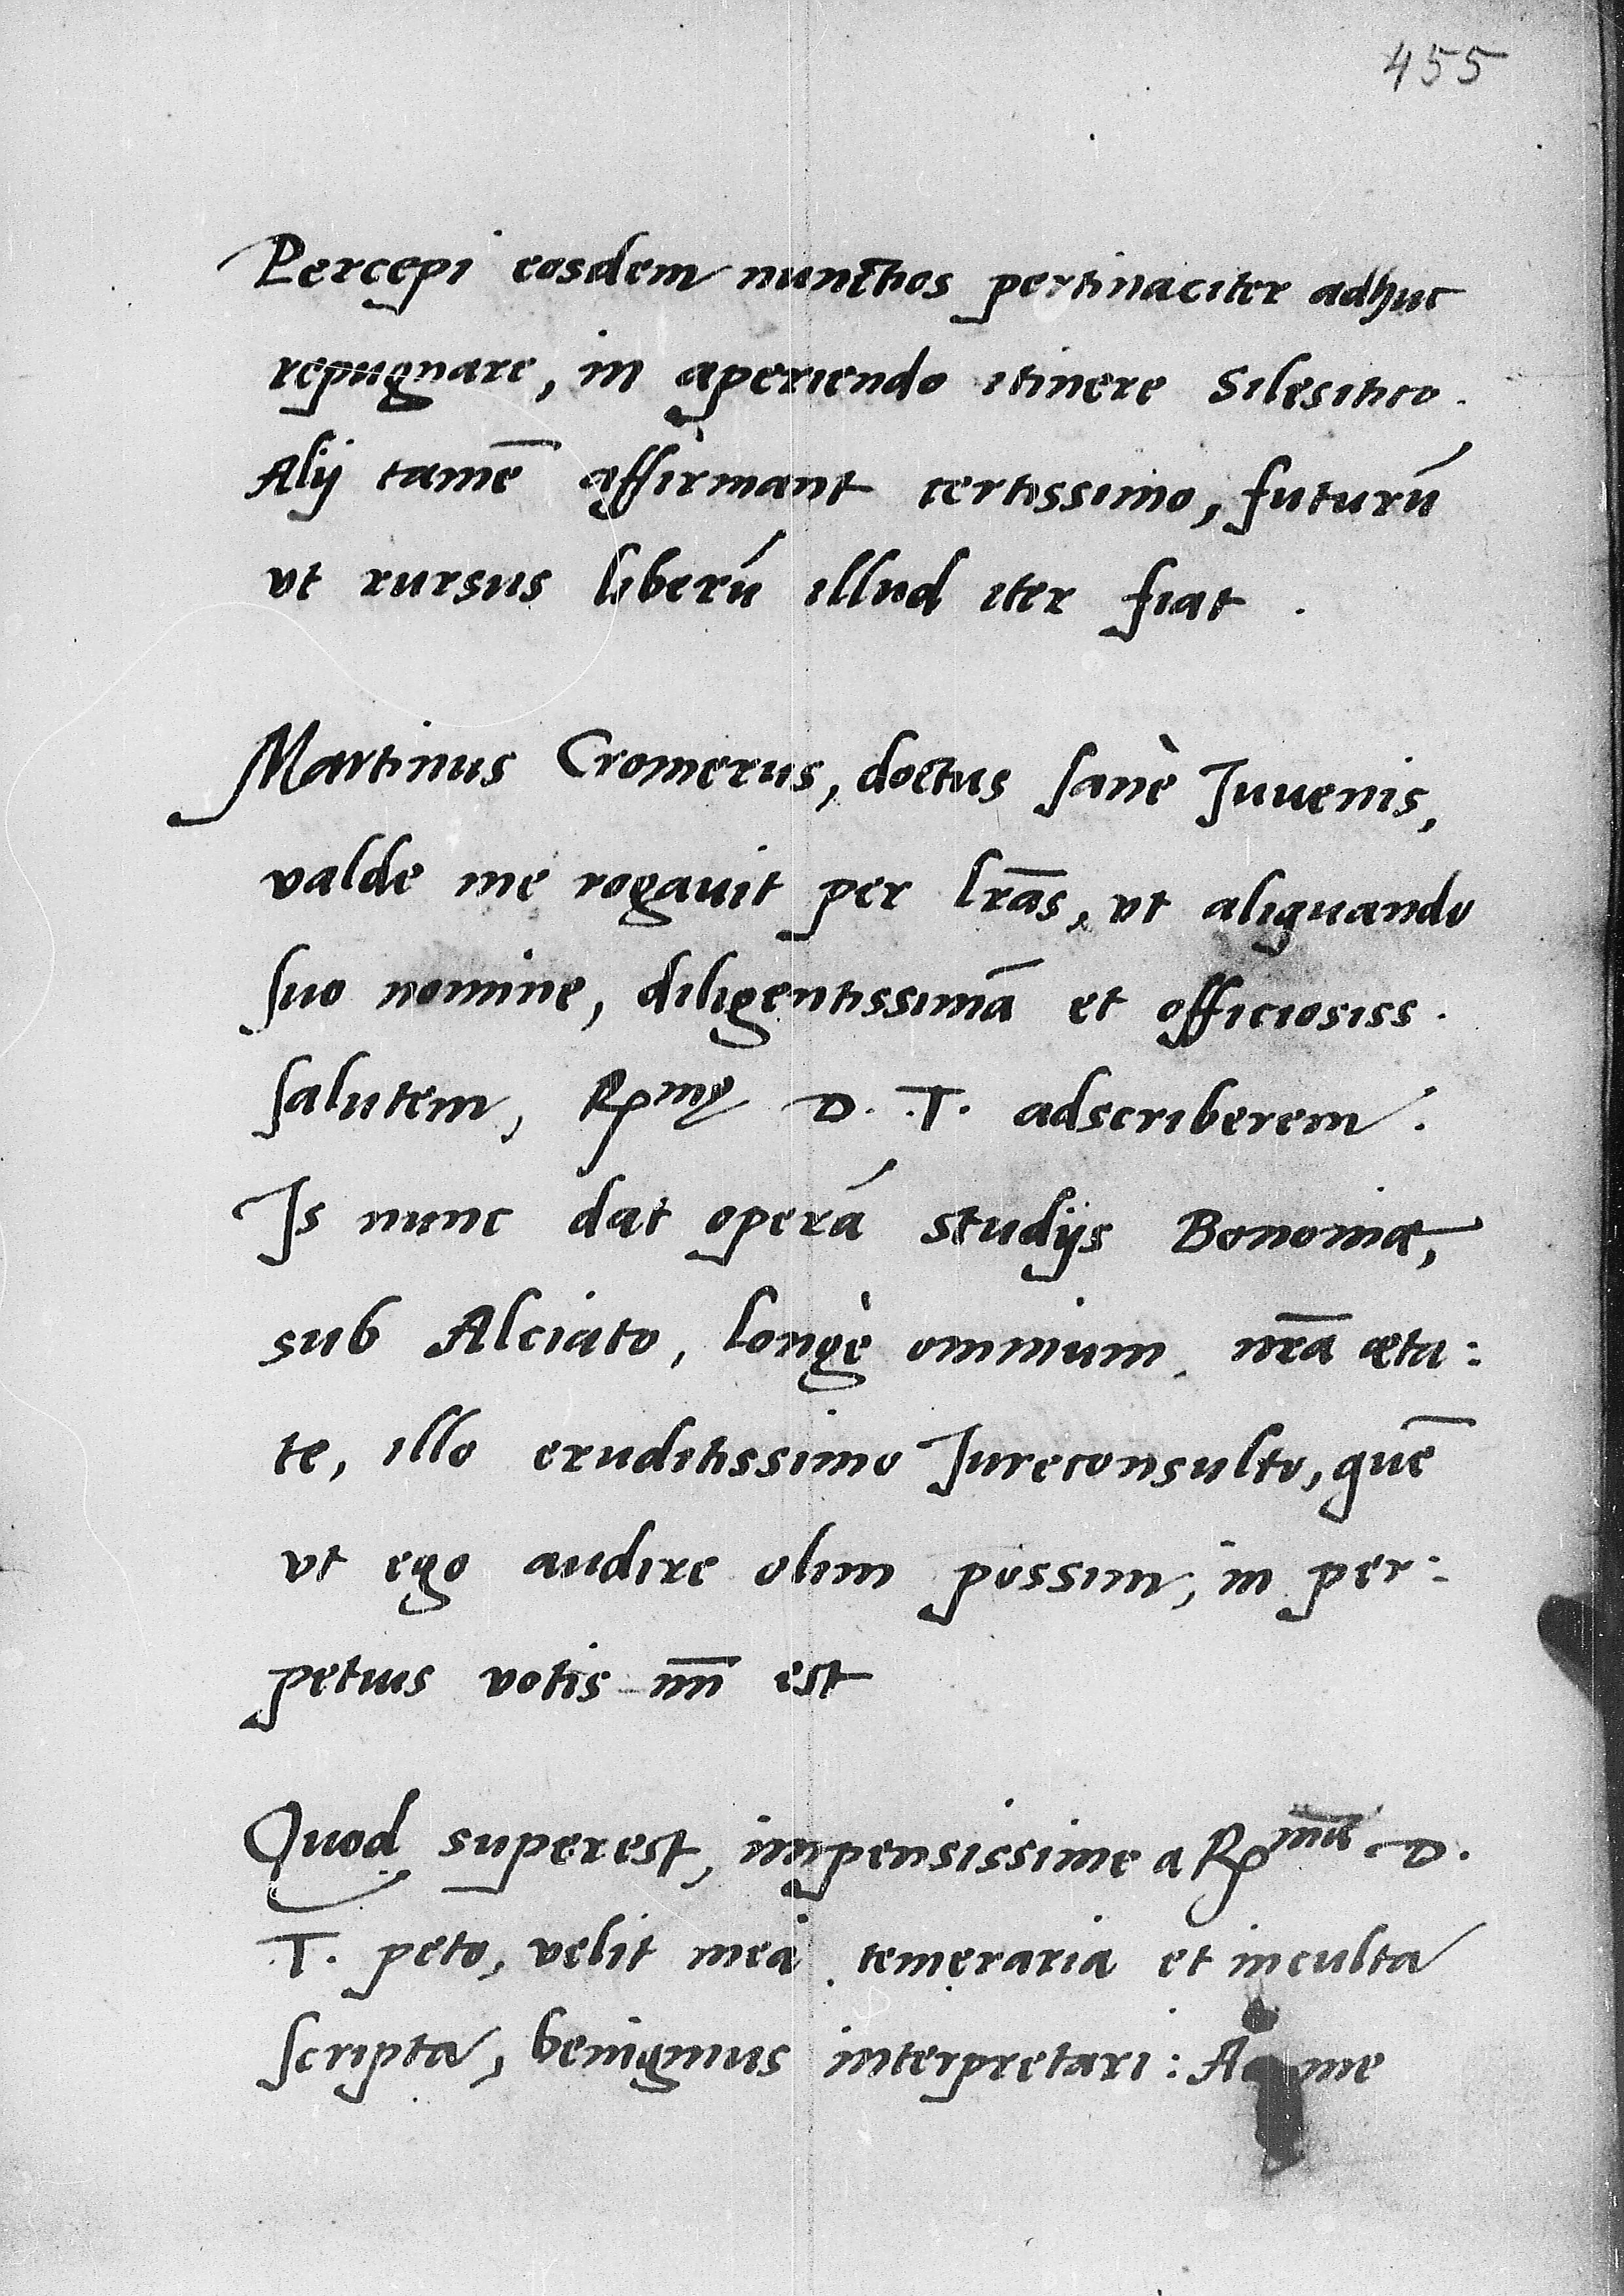 455
Percepi eosdem nunctios pertinaciter adhuc
repugnare, in aperiendo itinere Silesitico.
Alij tamē affirmant certissimo, futurū
vt rursus liberū illud iter fiat.
Martinus Cromerus, doctus sanè Juuenis,
valde me rogauit per lr̄as, vt aliquando
suo nomine, diligentissimā et officiosiss.
salutem, Rmę D. T. adscriberem.
Is nunc dat operā studijs Bononiæ,
sub Alciato, longè omnium nr̄a æta:
te, illo eruditissimo Jureconsulto, quē
vt ego audire olim possim, in per:
petuis votis mī est
Quod superest, impensissime a Rma D.
T. peto, velit mea temeraria et inculta
scripta, benignius interpretari: me